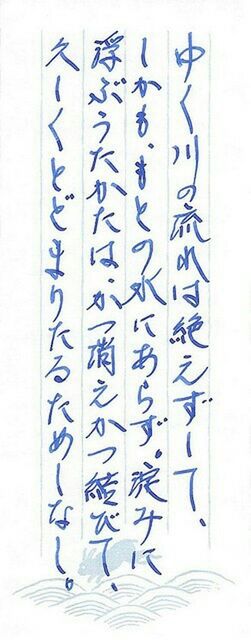 ゆく川の流れは絶えずして、
しかも、もとの水にあらず。淀みに
浮ぶうたかたは、かつ消えかつ結びて、
久しくとどまりたるためしなし。